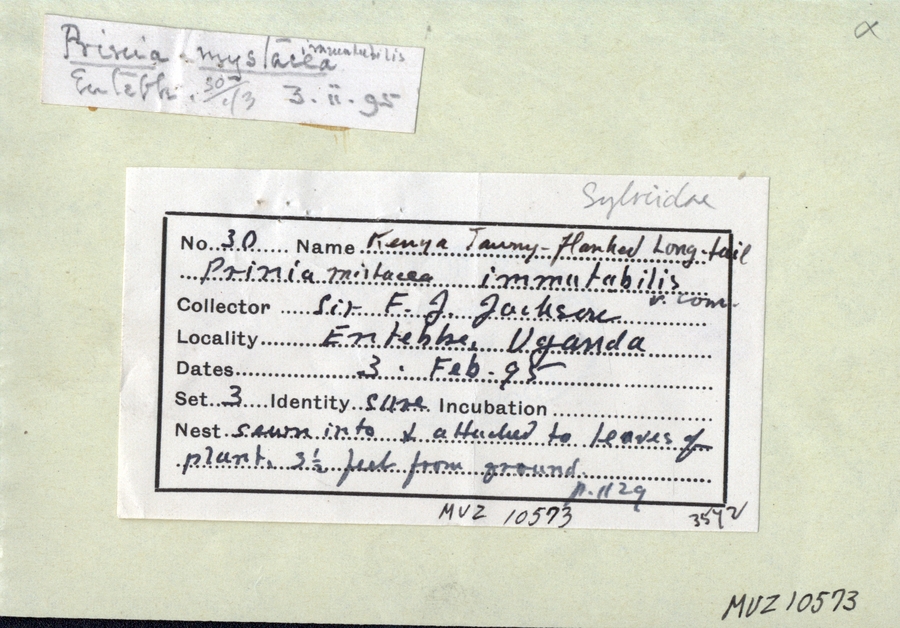 Prinia mystacea immutabilis
Entebbe. 30/3 3.ii.95
Sylviidae
No. 30 Name Kenya Tawny-flanked Long-tail
Prinia mistacea immutabilis
v. com.
Collector Sir F. J. Jackson
Locality Entebbe, Uganda
Dates 3. Feb. 95
Set 3 Identity sure Incubation
Nest sewn into & attached to leaves of
plant. 3½ feet from ground.
p. 1129
MVZ 10573
MVZ 10573